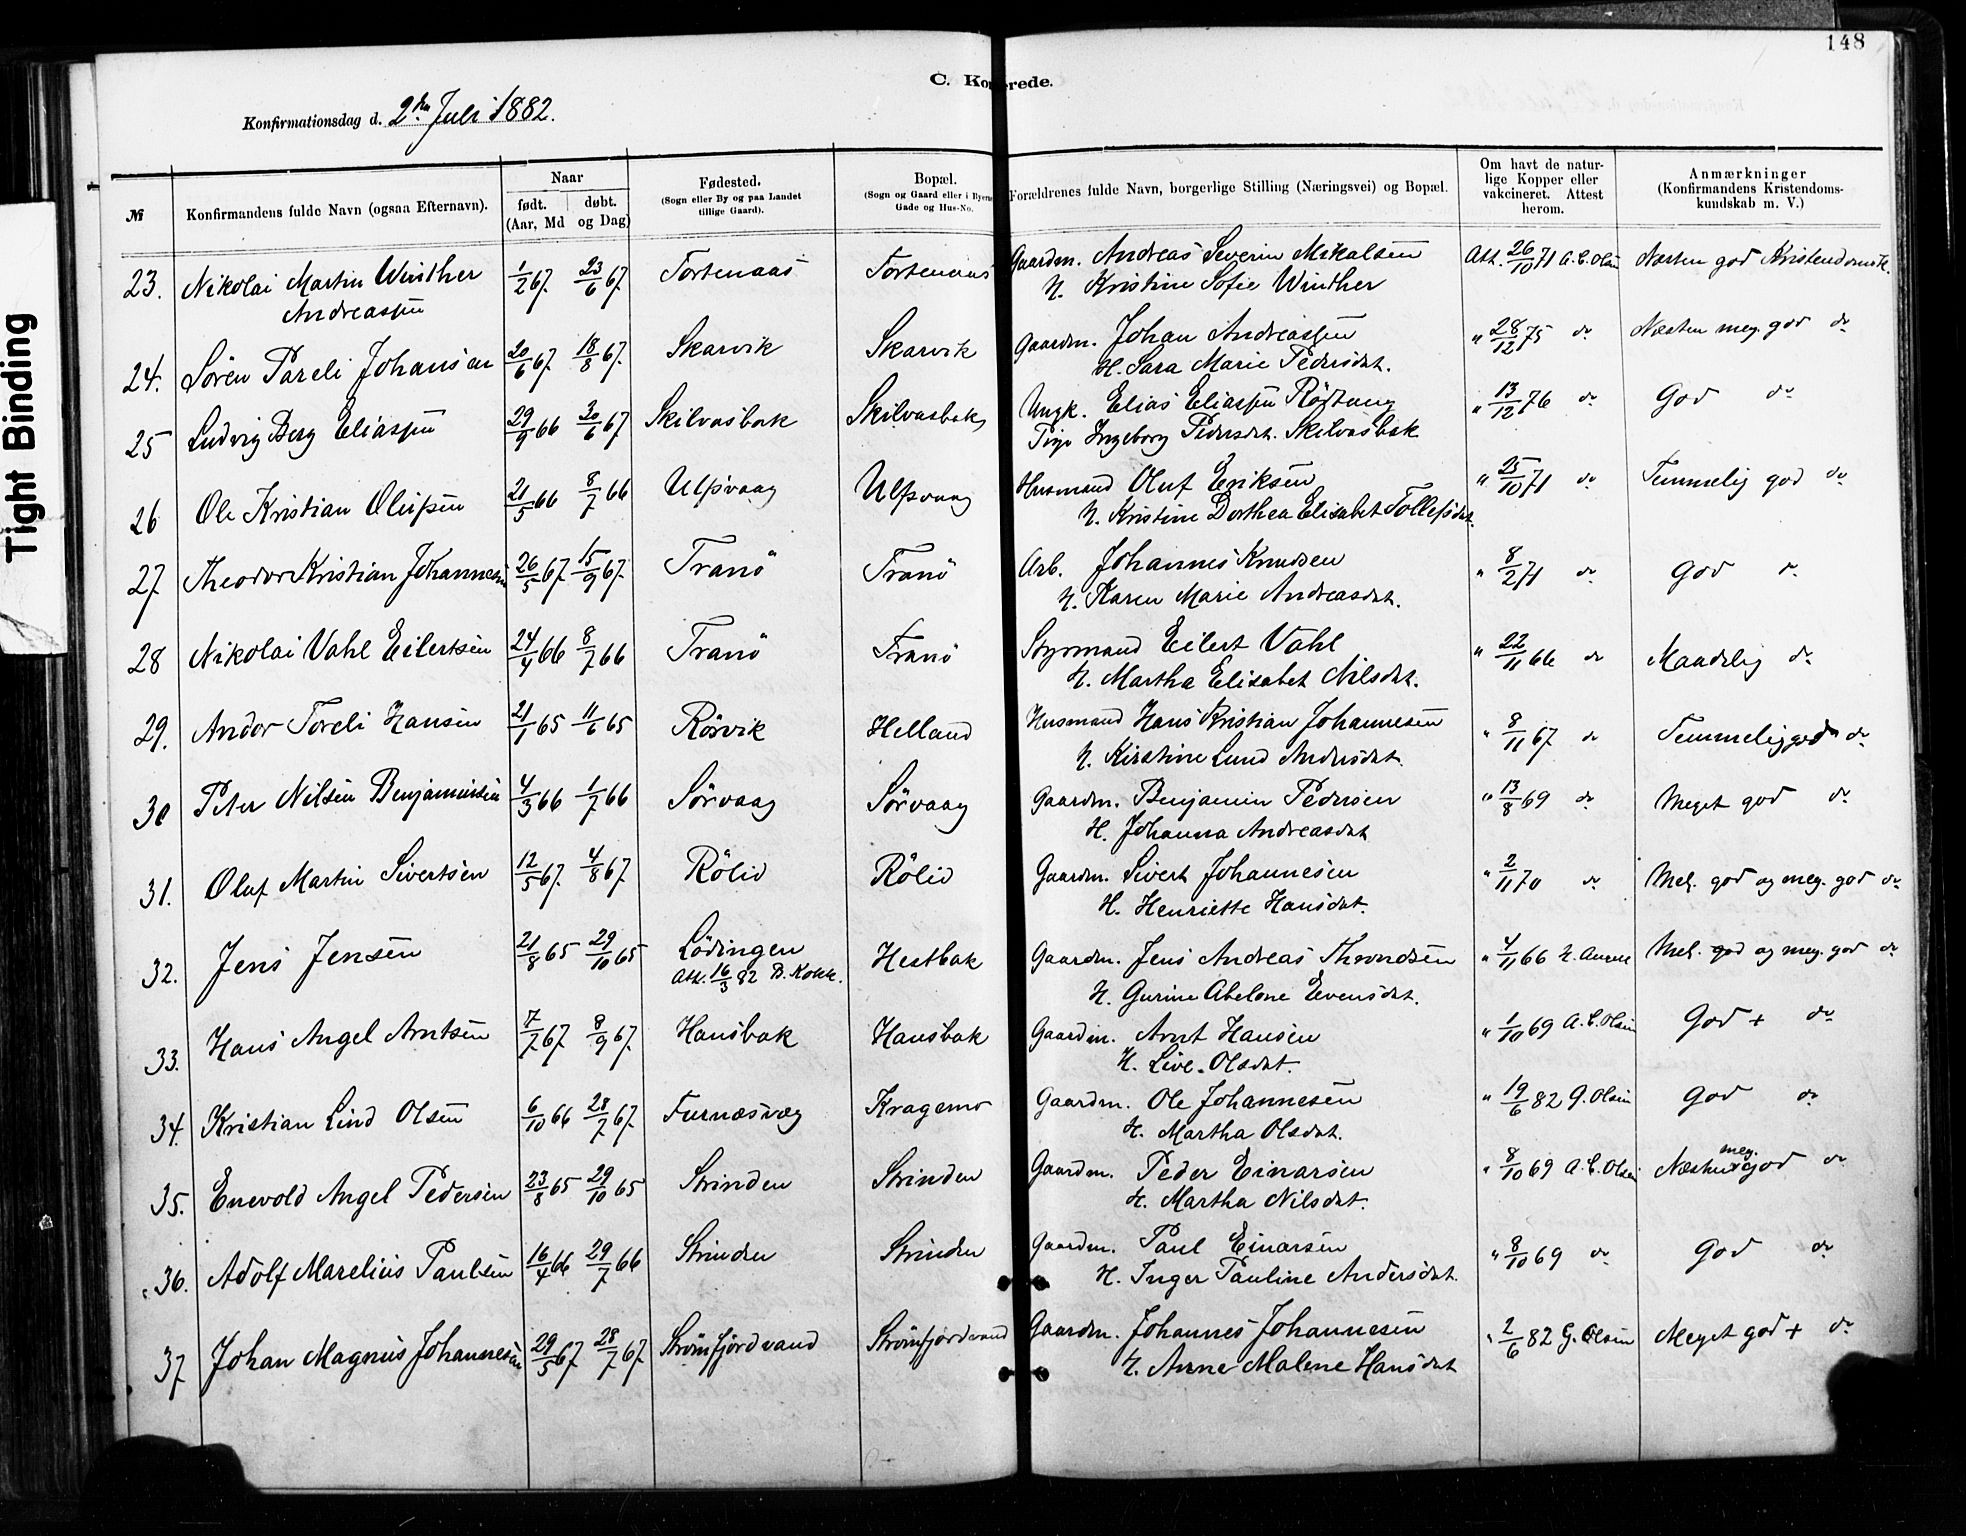 148
C. Konfirmerede.
Konfirmationsdag d. 2den Juli 1882.
No
Konfirmandens fulde Navn (ogsaa Efternavn).
Naar
født. døbt.
(Aar, Md og Dag)
Fødested.
(Sogn eller By og paa Landet
tillige Gaard).
Bopæl.
(Sogn og Gaard eller i Byerne
Gade og Hus-No.
Forældrenes fulde Navn, borgerlige Stilling (Næringsvei) og Bopæl.
Om havt de natur-
lige Kopper eller
vakcineret. Attest
herom.
Anmærkninger
(Konfirmandens Kristendoms-
kundskab m. V.)
23. Nikolai Martin Winther 1/2 67. 23/6 67. Tortenaas Tortenaas Gaardm. Andreas Severin Mikalsen Att. 26/10 71 A. C. Olsen Næsten god Kristendomsk.
Andreassen H. Kristine Sofie Winther
24. Sören Pareli Johansen 20/6 67. 18/8 67. Skarvik Skarvik Gaardm. Johan Andreassen " 28/12 75 do Næsten meg. god do
H. Sara Marie Pedersdat.
25 Ludvig Berg Eliassen 29/9 66 30/6 67 Skilvasbak Skilvasbak Ungk. Elias Eliassen Rödtang " 13/12 76 do God do
Pige Ingeborg Pedersdat. Skilvasbak
26 Ole Kristian Olufsen 21/5 66 8/7 66 Ulfsvaag Ulfsvaag Husmand Oluf Eriksen " 25/10 71 do Temmelig god do
H. Kristine Dorthea Elisabet Tollefsdat.
27 Theodor Kristian Johannesen 26/5 67. 15/9 67. Tranö Tranö Arb. Johannes Knudsen " 8/2 71 do God do
H. Karen Marie Andreasdat.
28 Nikolai Vahl Eilertsen 24/4 66 8/7 66 Tranö Tranö Styrmand Eilert Vahl " 22/11 66 do Maadelig do
H. Martha Elisabet Nilsdat.
29. Andor Toreli Hansen 21/1 65 11/6 65 Rörvik Helland Husmand Hans Kristian Johannesen " 8/11 67 do Temmelig god do
H. Kirstine Lund Andersdat.
30 Peter Nilsen Benjaminsen 4/3 66 1/7 66 Sörvaag Sörvaag Gaardm. Benjamin Pedersen " 13/8 69 do Meget god do
H. Johanna Andreasdat
31. Oluf Martin Sivertsen 12/5 67. 4/8 67. Rölid Rölid Gaardm. Sivert Johannesen " 2/11 70 do Mel. god og meg. god do
H. Henriette Hansdat.
32. Jens Jensen 21/8 65 29/10 65 Lödingen Hestbak Gaardm. Jens Andreas Throndsen " 4/11 66 Mel. god og meg. god do
Att. 16/3 82 B. H. Gurine Abelone Evensdat.
33. Hans Angel Arntsen 7/7 67 8/9 67. Hansbak Hansbak Gaardm. Arnt Hansen " 1/10 69 A. C. Olsen God + do
H. Live Olsdat.
34. Kristian Lind Olsen 6/10 66 28/7 67. Furnæsvag Kragemo Gaardm. Ole Johannesen " 19/6 82 G. Olsen God do
H. Martha Olsdat.
35. Enevold Angel Pedersen 23/8 65 29/10 65 Strinden Strinden Gaardm. Peder Einarsen " 8/10 69 A. C. Olsen Næsten meg. god do
H. Martha Nilsdat.
36. Adolf Marelius Paulsen 16/4 66 29/7 66 Strinden Strinden Gaardm. Paul Einarsen " 8/10 69 do God do
H. Inger Pauline Andersdat.
37 Johan Magnus Johannesen 29/5 67 28/7 67. Strömfjordvand Strömfjordvand Gaardm. Johannes Johannesen " 2/6 82 G. Olsen Meget god + do
H. Anne Malene Hansdat
Tight Binding